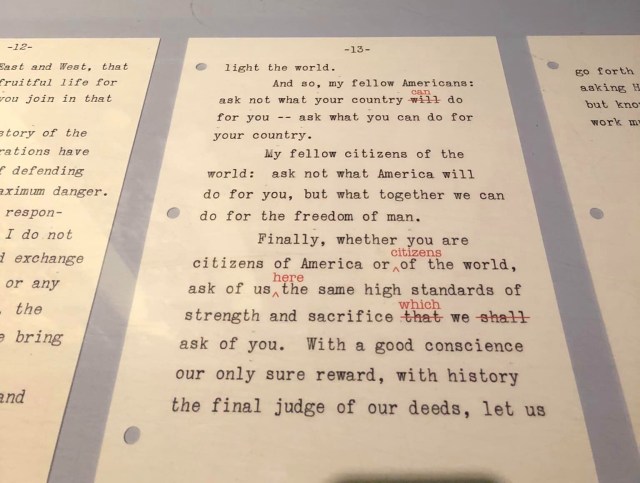 -12-
East and West, that
fruitful life for
you join in that
story of the
rations have
f defending
aximum danger.
respon-
I do not
d exchange
or any
, the
e bring
and
-13-
light the world.
And so, my fellow Americans:
can
ask not what your country will do
for you -- ask what you can do for
your country.
My fellow citizens of the
world: ask not what America will
do for you, but what together we can
do for the freedom of man.
Finally, whether you are
citizens
citizens of America or ^ of the world,
here
ask of us, ^ the same high standards of
which
strength and sacrifice that we shall
ask of you. With a good conscience
our only sure reward, with history
the final judge of our deeds, let us
go forth
asking H
but kno
work mu